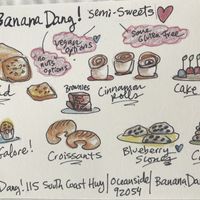 Banana Dang! Semi-Sweets
vegan options
no nuts options
some Gluten Free
Brownies
Cinnamon Rolls
Cake
Galore!
Croissants
Blueberry Scones
Dang! 115 South Coast Hwy | Oceanside | BananaDang
92054